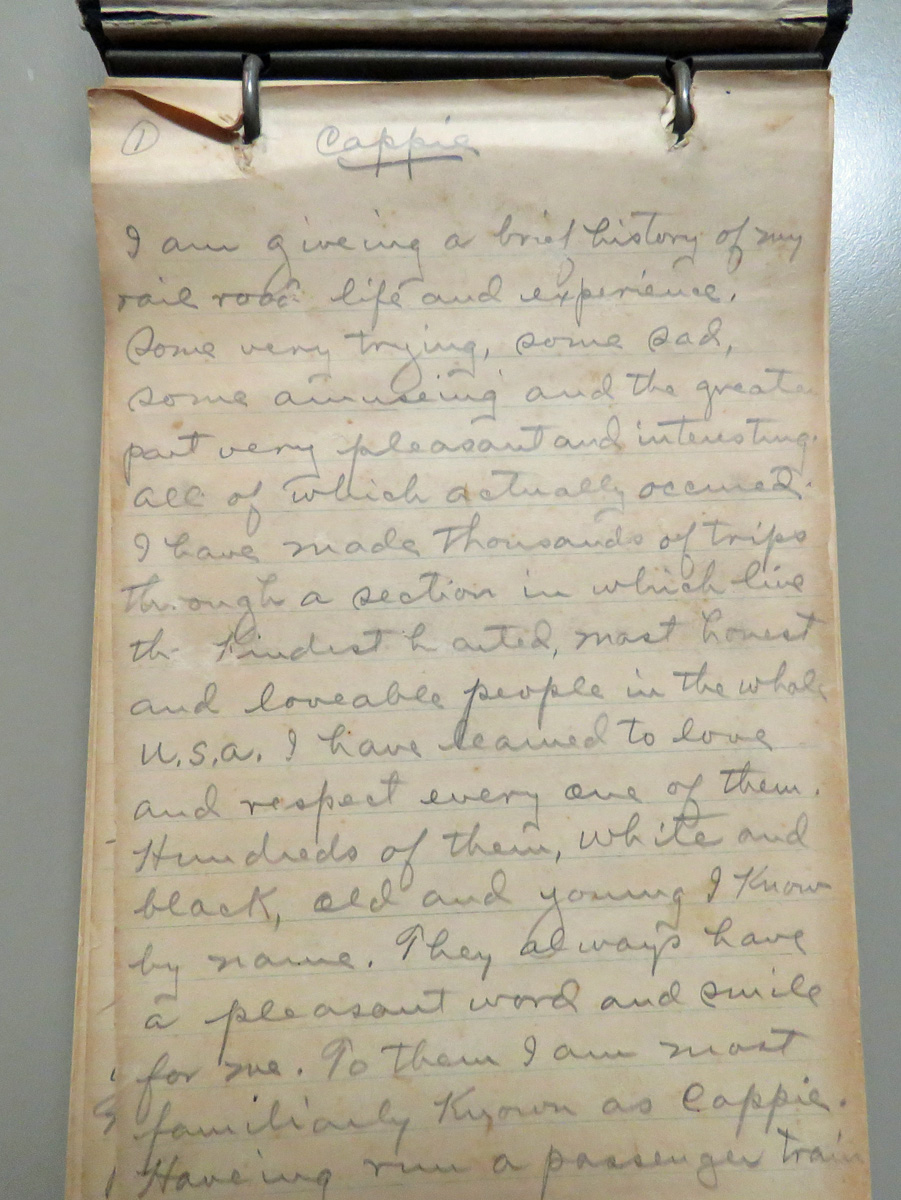 ① Cappie
I am giveing a brief history of my
rail road life and experience.
Some very trying, some sad,
some amuseing and the greater
part very pleasant and interesting.
all of which actually occured.
I have made thousands of trips
through a section in which live
the kindest hearted, most honest
and loveable people in the whole
U.S.A. I have learned to love
and respect every one of them.
Hundreds of them, white and
black, old and young I know
by name. They always have
a pleasant word and smile
for me. To them I am most
familiarly known as Cappie.
Haveing run a passenger train